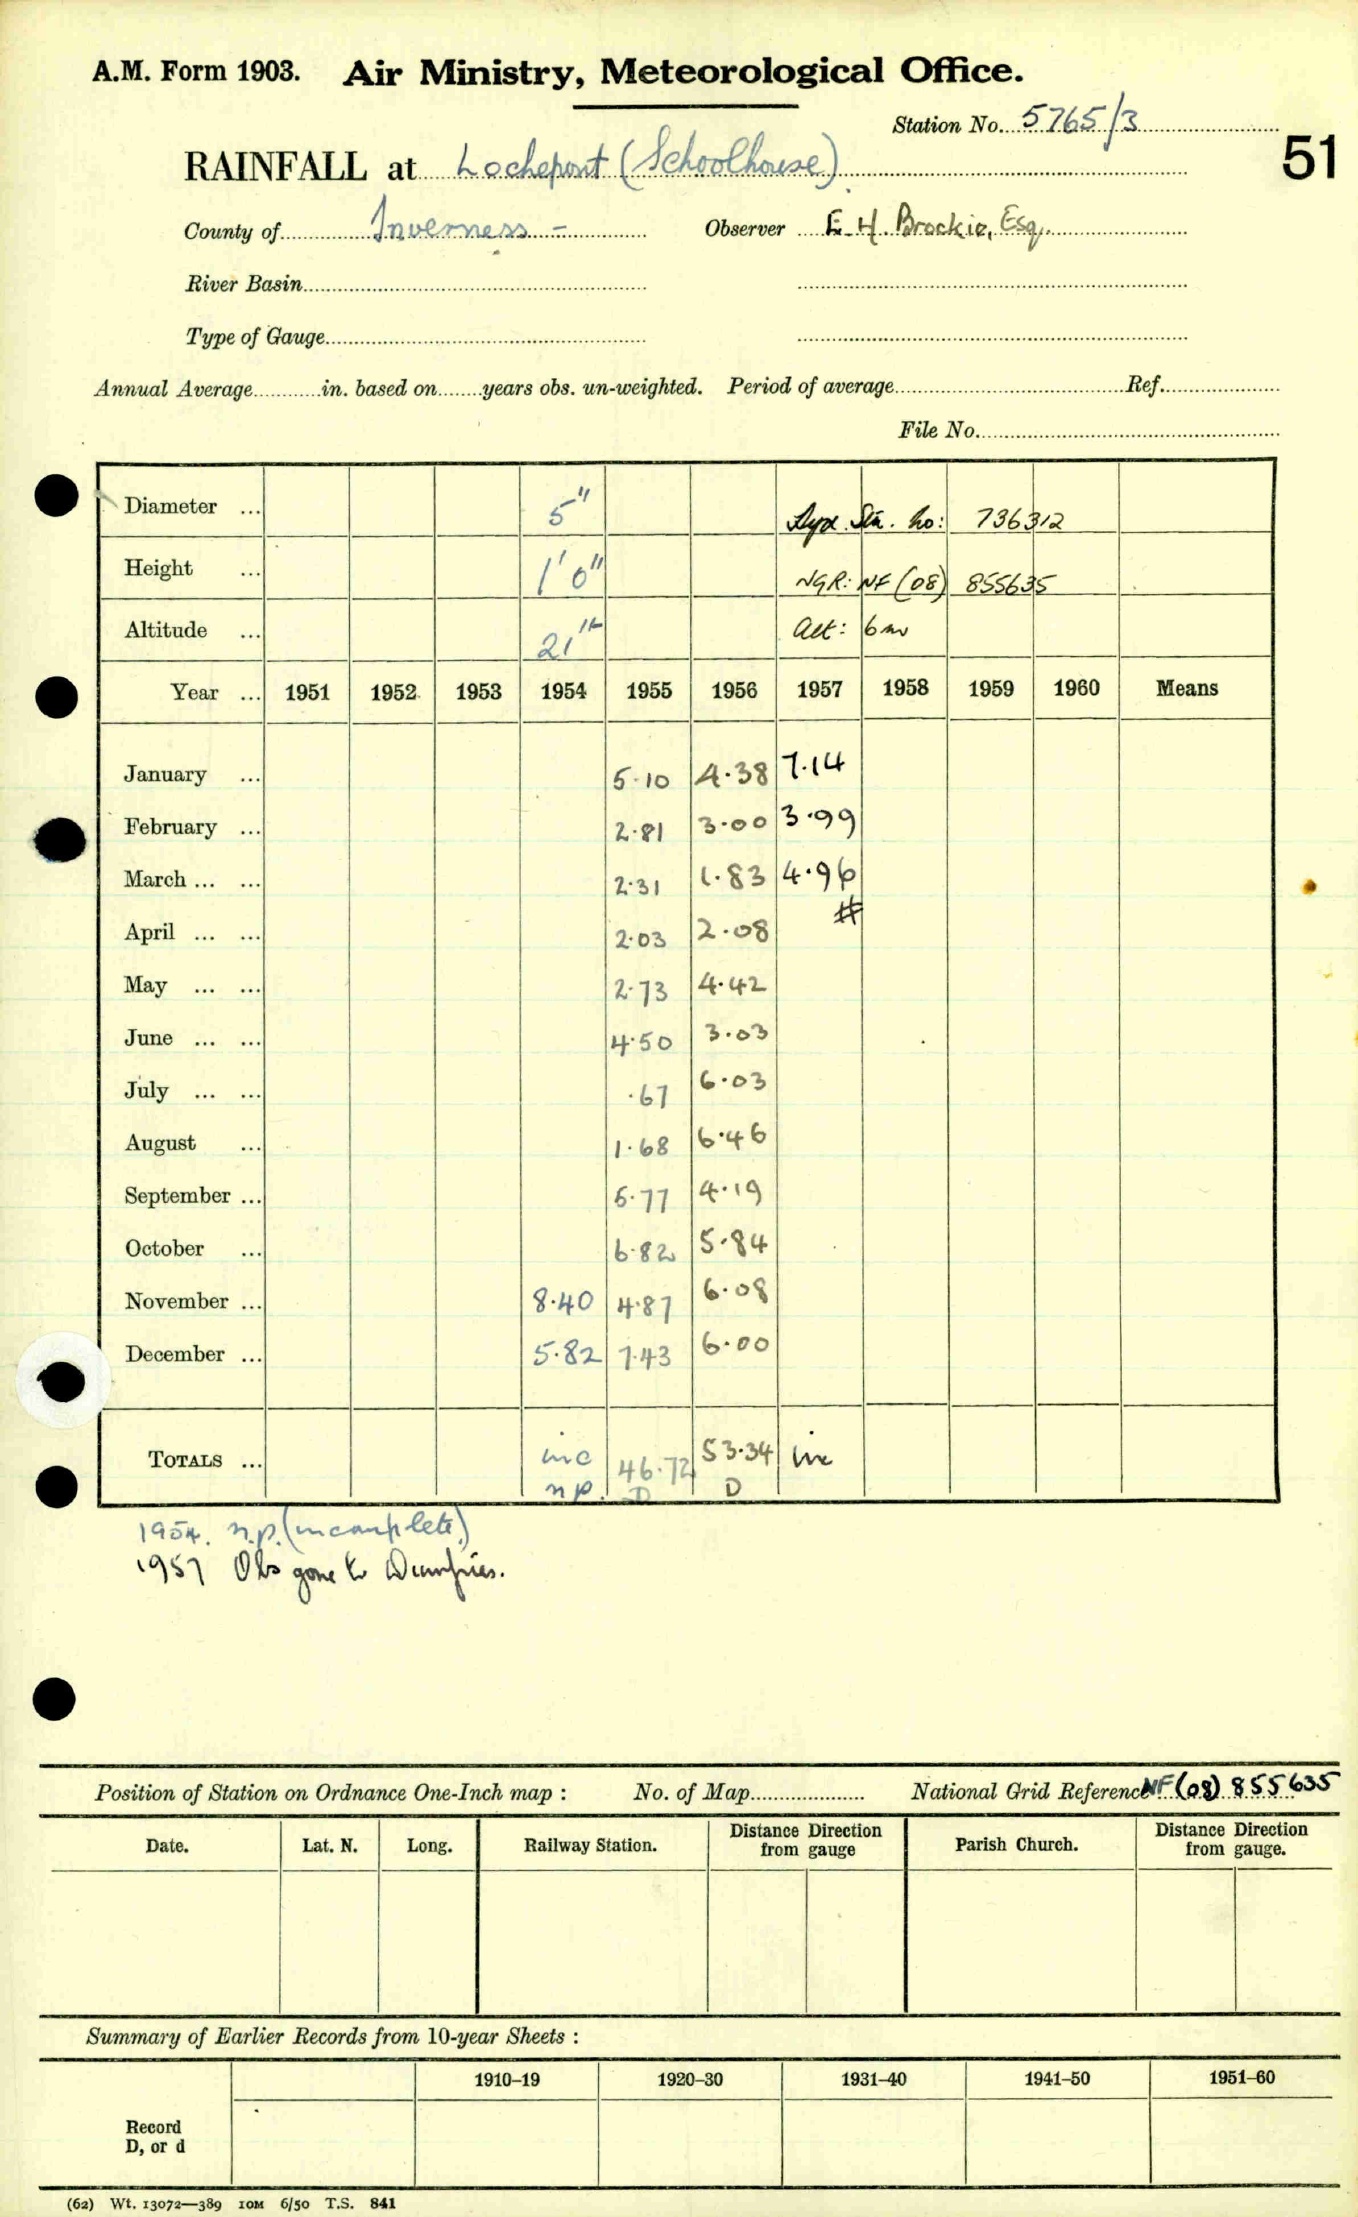 A.M. Form 1903. Air Ministry, Meteorological Office.
Station No. 5765/3
51
RAINFALL at Locheport (Schoolhouse)
County of Inverness - Observer E. H. Brockie, Esq.
River Basin
Type of Gauge
Annual Average in. based on years obs. un-weighted. Period of average Ref.
File No.
Diameter ... 5" Hyd. Sta. no: 736312
Height ... 1' 0" NGR: NF (08) 855635
Altitude ... 21ft Alt: 6m
Year ... 1951 1952 1953 1954 1955 1956 1957 1958 1959 1960 Means
January ... 5.10 4.38 7.14
February ... 2.81 3.00 3.99
March ... ... 2.31 1.83 4.96
#
April ... ... 2.03 2.08
May ... ... 2.73 4.42
June ... ... 4.50 3.03
July ... ... .67 6.03
August ... 1.68 6.46
September ... 5.77 4.19
October ... 6.82 5.84
November ... 8.40 4.87 6.08
December ... 5.82 7.43 6.00
TOTALS ... inc 46.72 53.34 inc
n.p. D D
1954. n.p. (incomplete)
1957 Obs gone to Dumfries.
Position of Station on Ordnance One-Inch map : No. of Map National Grid Reference NF (08) 855635
Date. Lat. N. Long. Railway Station. Distance from gauge Direction Parish Church. Distance from gauge. Direction
Summary of Earlier Records from 10-year Sheets :
1910–19 1920–30 1931–40 1941–50 1951–60
Record
D, or d
(62) Wt. 13072—389 10M 6/50 T.S. 841